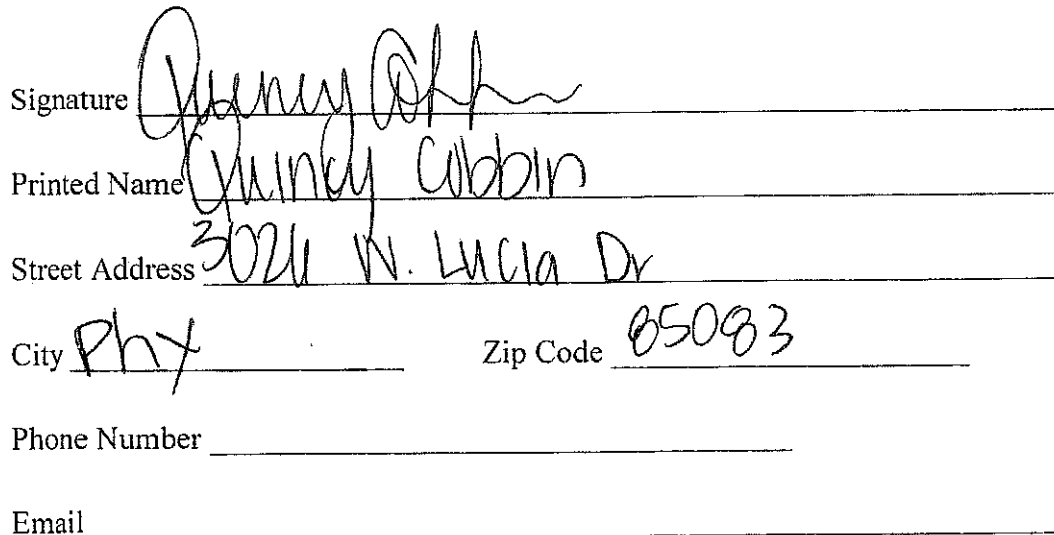 Signature Quincy
Printed Name Quincy Cobbin
Street Address W. Lucia Dr
City Phx Zip Code 85083
Phone Number
Email